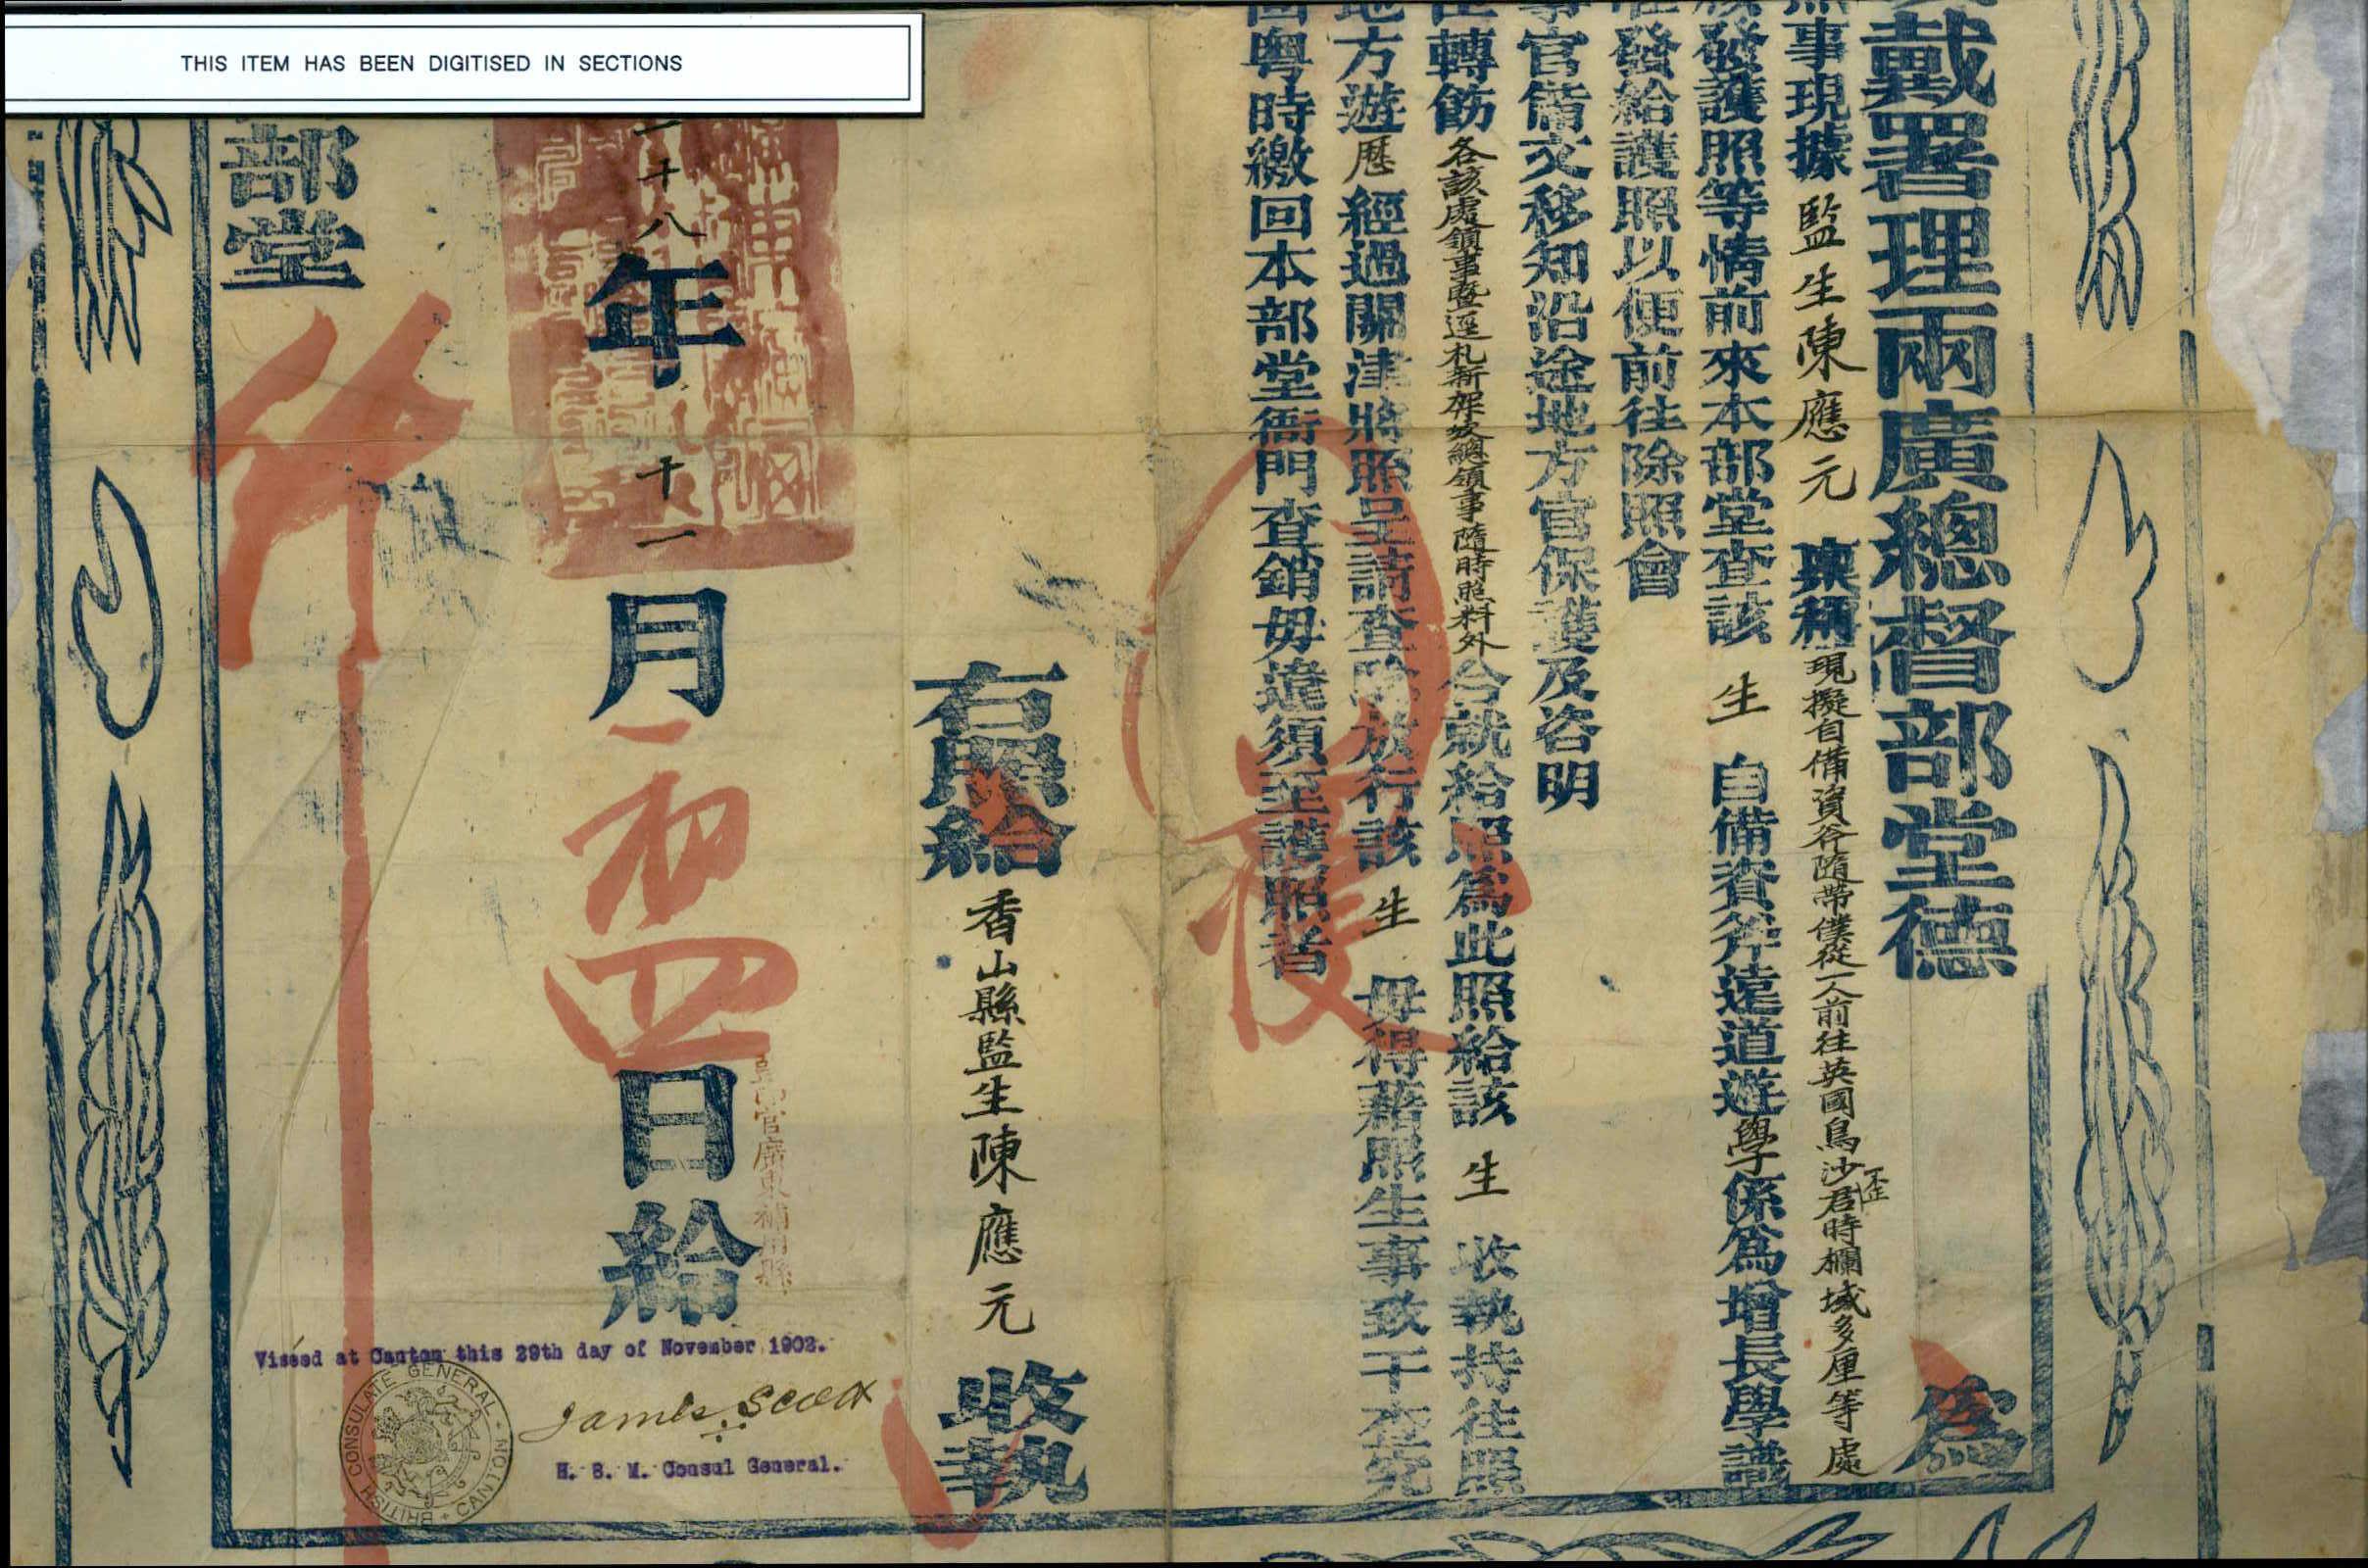 THIS ITEM HAS BEEN DIGITISED IN SECTIONS
戴署理兩廣總督部堂德
為
事現據監生陳應元稟稱現擬自備資斧隨帶僕從一人前往英國鳥沙歪君時欄域多厘等處
發護照等情前來本部堂查該生自備資斧遠道遊學係為增長學識
發給護照以便前往除照會
事官備文移知沿途地方官保護及咨明
轉飭各該處領事暨逕札新架坡總領事隨時照料外合就給照為此照給該生收執持往照
地方遊歷經過關津將照呈請查驗放行該生毋得藉照生事致干查究
回粵時繳回本部堂衙門查銷毋違須至護照者
護
右照給香山縣監生陳應元收執
二十八年十一月初四日給
官廣東補用縣
部堂
行
Viséed at Canton this 29th day of November 1902.
James Scott
H. B. M. Consul General.
BRITISH CONSULATE GENERAL · CANTON